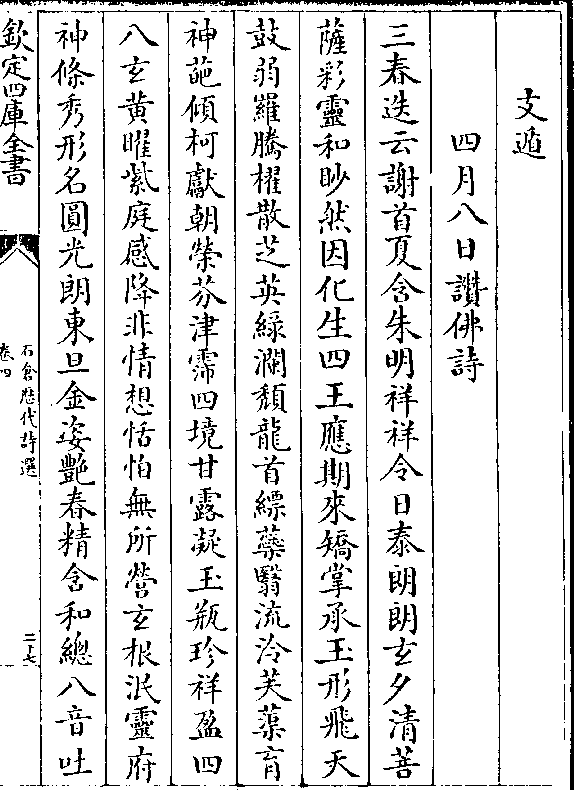 支遁
四月八日讚佛詩
三春迭云謝首夏含朱明祥祥令日泰朗朗玄夕清菩
薩彩靈和眇然因化生四王應期來矯掌承玉形飛天
鼓弱羅騰擢散芝英綠瀾頹龍首縹蘂翳流泠芙蕖育
神葩傾柯獻朝榮芬津霈四境甘露凝玉瓶珍祥盈四
八玄黃曜紫庭感降非情想恬怕無所營玄根泯靈府
神條秀形名圓光朗東旦金姿艶春精含和總八音吐
欽定四庫全書
石倉歷代詩選
卷四
二十七